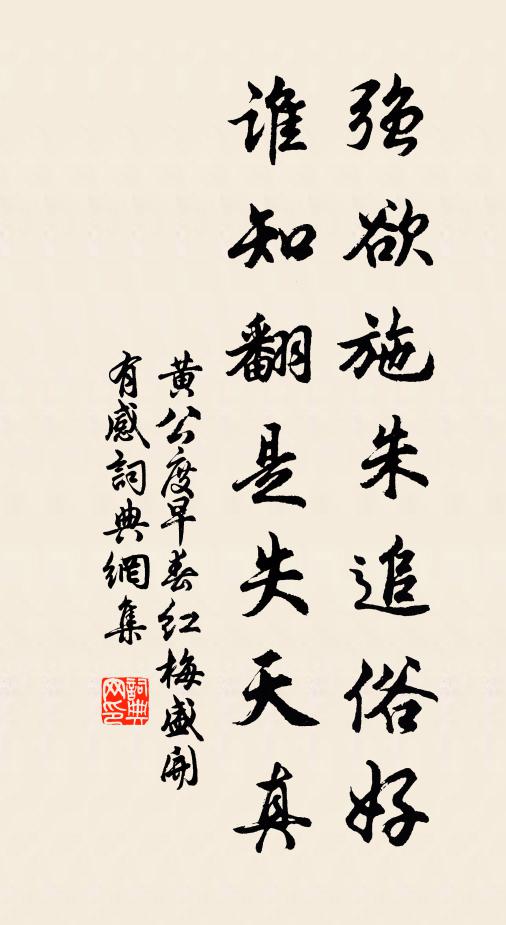 強欲施朱追俗好
誰知翻是失天真
黃公度早春紅梅盛開
有感詞典網集
詞典
网印